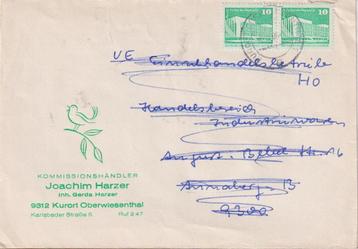 10 10
VE Einzelhandelsbetriebe
HO
Handelsbereich
Industriewaren
August-Bebel-Str. 16
Annaberg-B
9300
KOMMISSIONSHÄNDLER
Joachim Harzer
Inh. Gerda Harzer
9312 Kurort Oberwiesenthal
Karlsbader Straße 8. Ruf 2 47